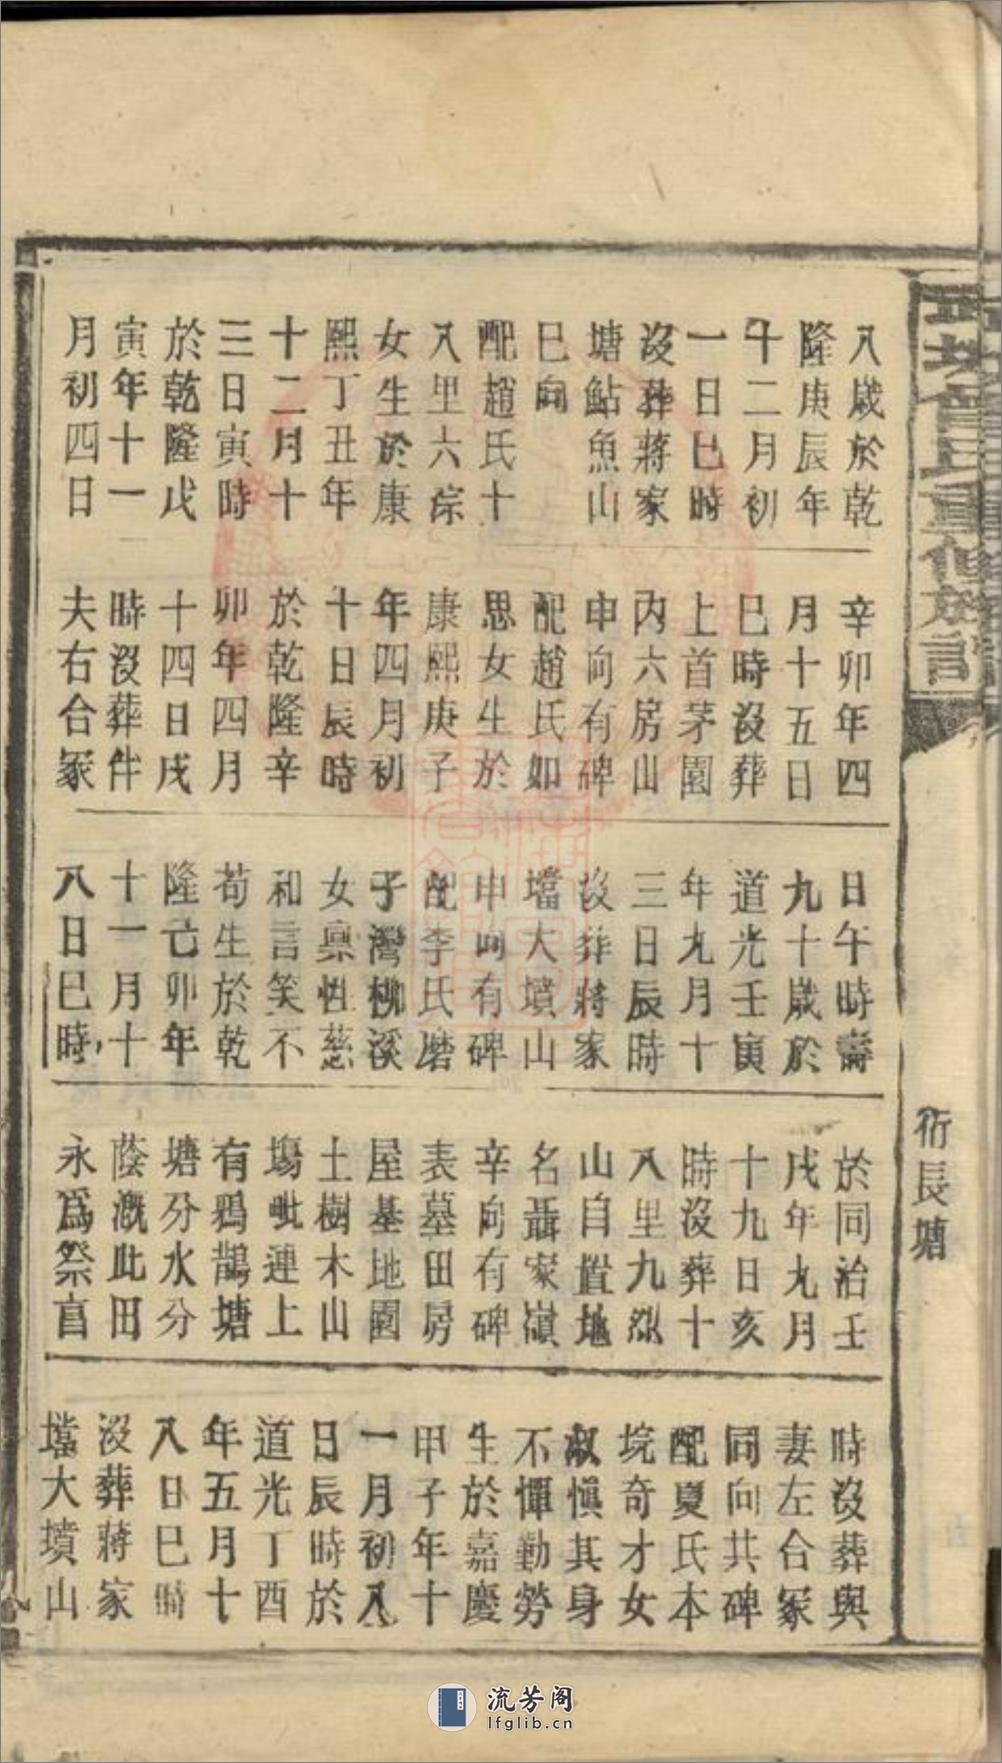 八歲於乾
隆庚辰年
十二月初
一日巳時
沒葬蔣家
塘鮎魚山
巳向
配趙氏十
八里六綜
女生於康
熙丁丑年
十二月十
三日寅時
於乾隆戊
寅年十一
月初四日
辛卯年四
月十五日
巳時沒葬
上首茅園
内六房山
申向有碑
配趙氏如
思女生於
康熙庚子
年四月初
十日辰時
於乾隆辛
卯年四月
十四日戌
時沒葬件
夫右合冢
日午時壽
九十歲於
道光壬寅
年九月十
三日辰時
沒葬蔣家
壋大墳山
申向有碑
配李氏磨
子灣柳溪
女稟性慈
和言笑不
苟生於乾
隆己卯年
十一月十
八日巳時
於同治壬
戌年九月
十九日亥
時沒葬十
八里九
山自置地
名聶家嶺
辛向有碑
表墓田房
屋基地園
土樹木山
場毗連上
有鴉鵲塘
塘分水分
蔭溉此田
永爲祭
時沒葬與
妻左合冢
同向共碑
配夏氏本
境奇才女
淑愼其身
不憚勤勞
生於嘉慶
甲子年十
一月初八
日辰時於
道光丁酉
年五月十
八日巳時
沒葬蔣家
壋大墳山
衍長塘
流芳阁
lfglib.cn